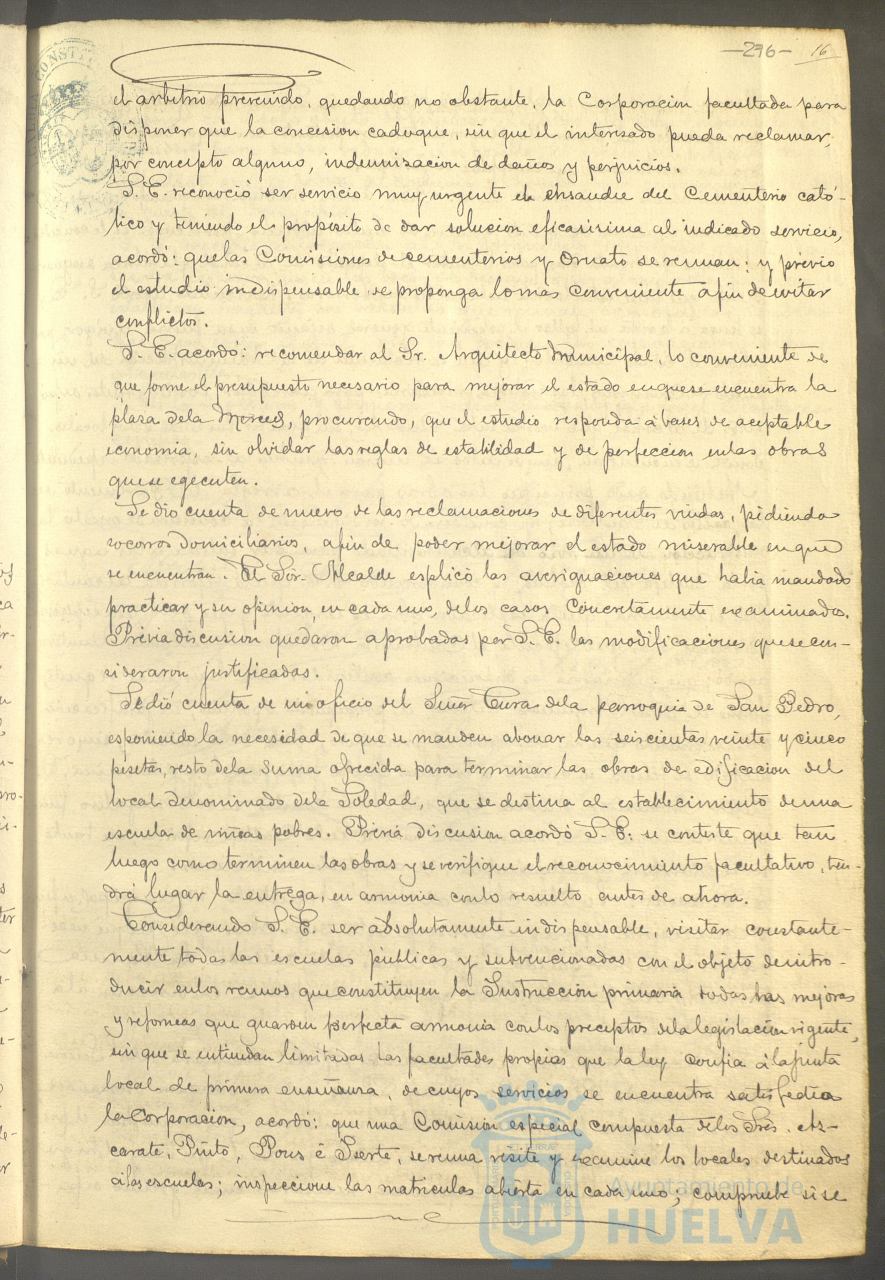 —296— 16
el arbitrio prevenido, quedando no obstante, la Corporacion facultada para
disponer que la concesion caduque, sin que el interesado pueda reclamar,
por concepto alguno, indemnizacion de daños y perjuicios.
S. E. reconoció ser servicio muy urgente el ensanche del Cementerio cató-
lico y teniendo el propósito de dar solucion eficasisima al indicado servicio,
acordó: que las Comisiones de cementerios y Ornato se reunan: y previo
el estudio indispensable se proponga lo mas conveniente afin de evitar
conflictos.
S. E. acordó: recomendar al Sr. Arquitecto Municipal, lo conveniente de
que forme el presupuesto necesario para mejorar el estado en que se encuentra la
plaza de la Merced, procurando, que el estudio responda á bases de aceptable
economia, sin olvidar las reglas de estabilidad y de perfeccion en las obras
que se egecuten.
Se dio cuenta de nuevo de las reclamaciones de diferentes viudas, pidiendo
socorros domiciliarios, afin de poder mejorar el estado miserable en que
se encuentran. El Sor. Alcalde esplicó las averiguaciones que habia mandado
practicar y su opinion, en cada uno, de los casos concretamente examinados.
Previa discusion quedaron aprobadas por S. E. las modificaciones que se con-
sideraron justificadas.
Se dió cuenta de un oficio del Señor Cura de la parroquia de San Pedro,
esponiendo la necesidad de que se manden abonar las seiscientas veinte y cinco
pesetas, resto de la suma ofrecida para terminar las obras de edificacion del
local denominado de la Soledad, que se destina al establecimiento de una
escuela de niñas pobres. Prévia discusion acordó S. E: se conteste que tan
luego como terminen las obras y se verifique el reconocimiento facultativo, ten-
drá lugar la entrega, en armonia con lo resuelto antes de ahora.
Considerando S. E. ser absolutamente indispensable, visitar constante-
mente todas las escuelas públicas y subvencionadas con el objeto de intro-
ducir en los ramos que constituyen la Instruccion primaria todas las mejoras
y reformas que guarden perfecta armonia con los preceptos de la legislacion vigente,
sin que se entiendan limitadas las facultades propias que la ley confia á la junta
local de primera enseñanza, de cuyos servicios se encuentra satisfecha
la Corporacion, acordó: que una Comision especial compuesta de los Sres. As-
carate, Pinto, Pous é Iserte, se reuna visite y examine los locales destinados
á las escuelas; inspeccione las matriculas abierta en cada uno; compruebe si se
Ayuntamiento de
HUELVA